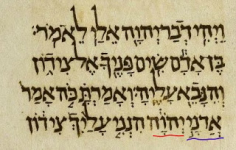 וַיְהִי דְבַר יְהוָה אֵלַי לֵאמֹר׃
בֶּן אָדָם שִׂים פָּנֶיךָ אֶל צִידוֹן
וְהִנָּבֵא עָלֶיהָ׃ וְאָמַרְתָּ כֹּה אָמַר
אֲדֹנָי יְהוִה הִנְנִי עָלַיִךְ צִידוֹן